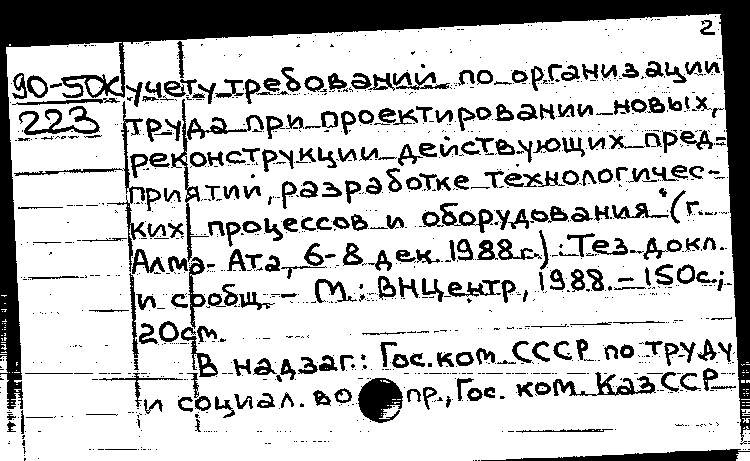 2
90-50к учету требований по организации
223 труда при проектировании новых,
реконструкции действующих пред=
приятий, разработке технологичес-
ких процессов и оборудования" (г.
Алма-Ата, 6-8 дек. 1988г.): Тез. докл.
и сообщ. - М.: ВНЦентр, 1988. - 150с;
20см.
В надзаг.: Гос. ком. СССР по труду
и социал. вопр., Гос. ком. КазССР